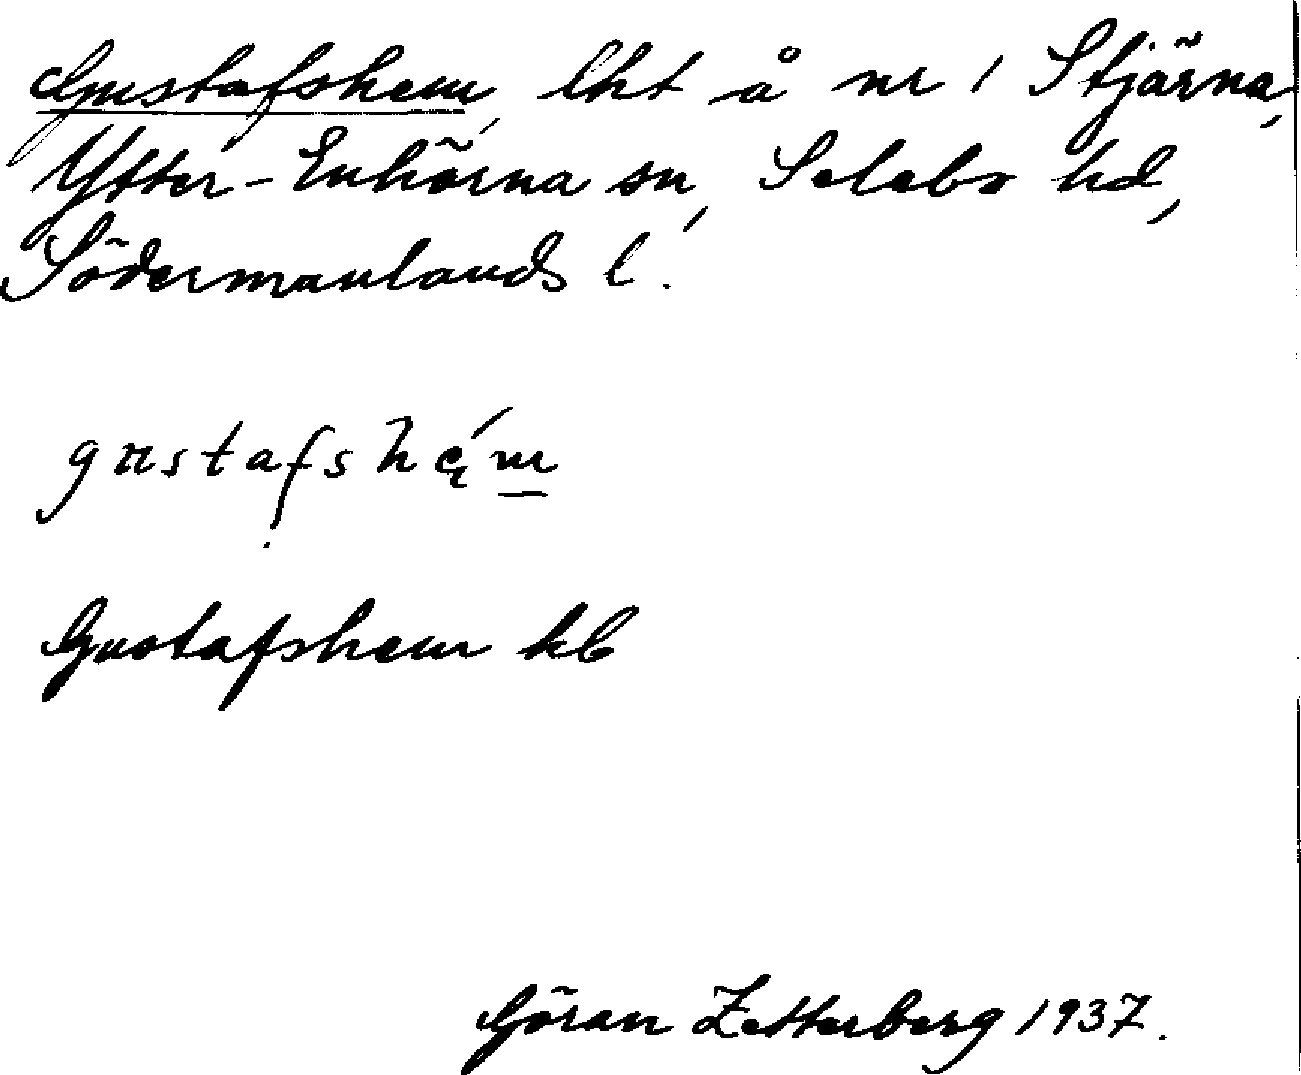 Gustafshem, lht å nr 1 Stjärna,
Ytter-Enhörna sn, Selebo hd,
Södermanlands l.
gustafshém
Gustafshem kb
Göran Zetterberg 1937.